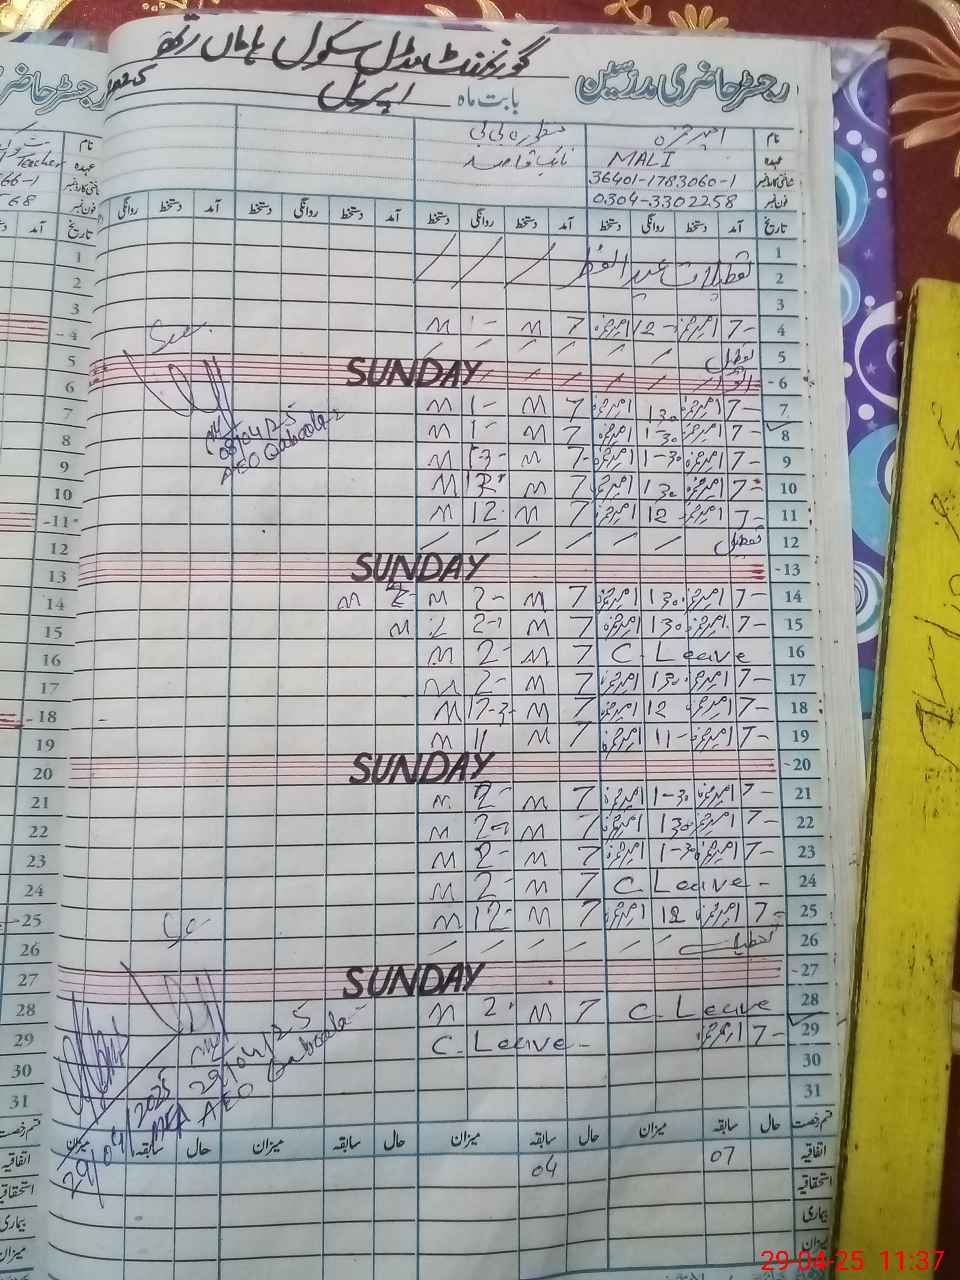 گورنمنٹ مڈل سکول
رجسٹر حاضری مدرسین
بابت ماہ اپریل
نام امیر حمزہ منظورہ بی بی
عہدہ MALI نائب قاصد
شناختی کارڈ نمبر 36401-1783060-1
فون نمبر 0304-3302258
تاریخ آمد دستخط روانگی دستخط آمد دستخط روانگی دستخط آمد دستخط روانگی دستخط آمد دستخط روانگی
1
2 تعطیلات عید الفطر
3
4 7- امیر حمزہ 12- امیر حمزہ 7 M 1- M
5 تعطیل
6 اتوار SUNDAY
7 7- امیر حمزہ 130 امیر حمزہ 7 M 1- M
8 7- امیر حمزہ 1-30 امیر حمزہ 7 M 1- M
9 7- امیر حمزہ 1-30 امیر حمزہ 7- M M
10 7- امیر حمزہ 130 امیر حمزہ 7 M M
11 7- امیر حمزہ 12 امیر حمزہ 7 M 12- M
12 تعطیل
13 SUNDAY
14 7- امیر حمزہ 130 امیر حمزہ 7 M 2- M M
15 7- امیر حمزہ 130 امیر حمزہ 7 M 2- M
16 C. Leave 7 M 2- M
17 7- امیر حمزہ 130 امیر حمزہ 7 M 2- M
18 7- امیر حمزہ 12 امیر حمزہ 7 M M
19 7- امیر حمزہ 11- امیر حمزہ 7 M 11 M
20 SUNDAY
21 7- امیر حمزہ 1-30 امیر حمزہ 7 M 2- M
22 7- امیر حمزہ 130 امیر حمزہ 7 M 2- M
23 7- امیر حمزہ 1-30 امیر حمزہ 7 M 2- M
24 C. Leave- 7 M 2- M
25 7- امیر حمزہ 12 امیر حمزہ 7 M 12- M
26 تعطیل
27 SUNDAY
28 C. Leave 7 M 2- M
29 7- امیر حمزہ C. Leave-
30
31
08/04/25
AEO Qaboola
29/04/25
AEO Qaboola
29/04/2025
MEA
قسم رخصت حال سابقہ میزان حال سابقہ میزان حال سابقہ میزان حال سابقہ میزان
اتفاقیہ 07 04
استحقاقیہ
بیماری
میزان
Teacher
66-1
68
29-04-25 11:37